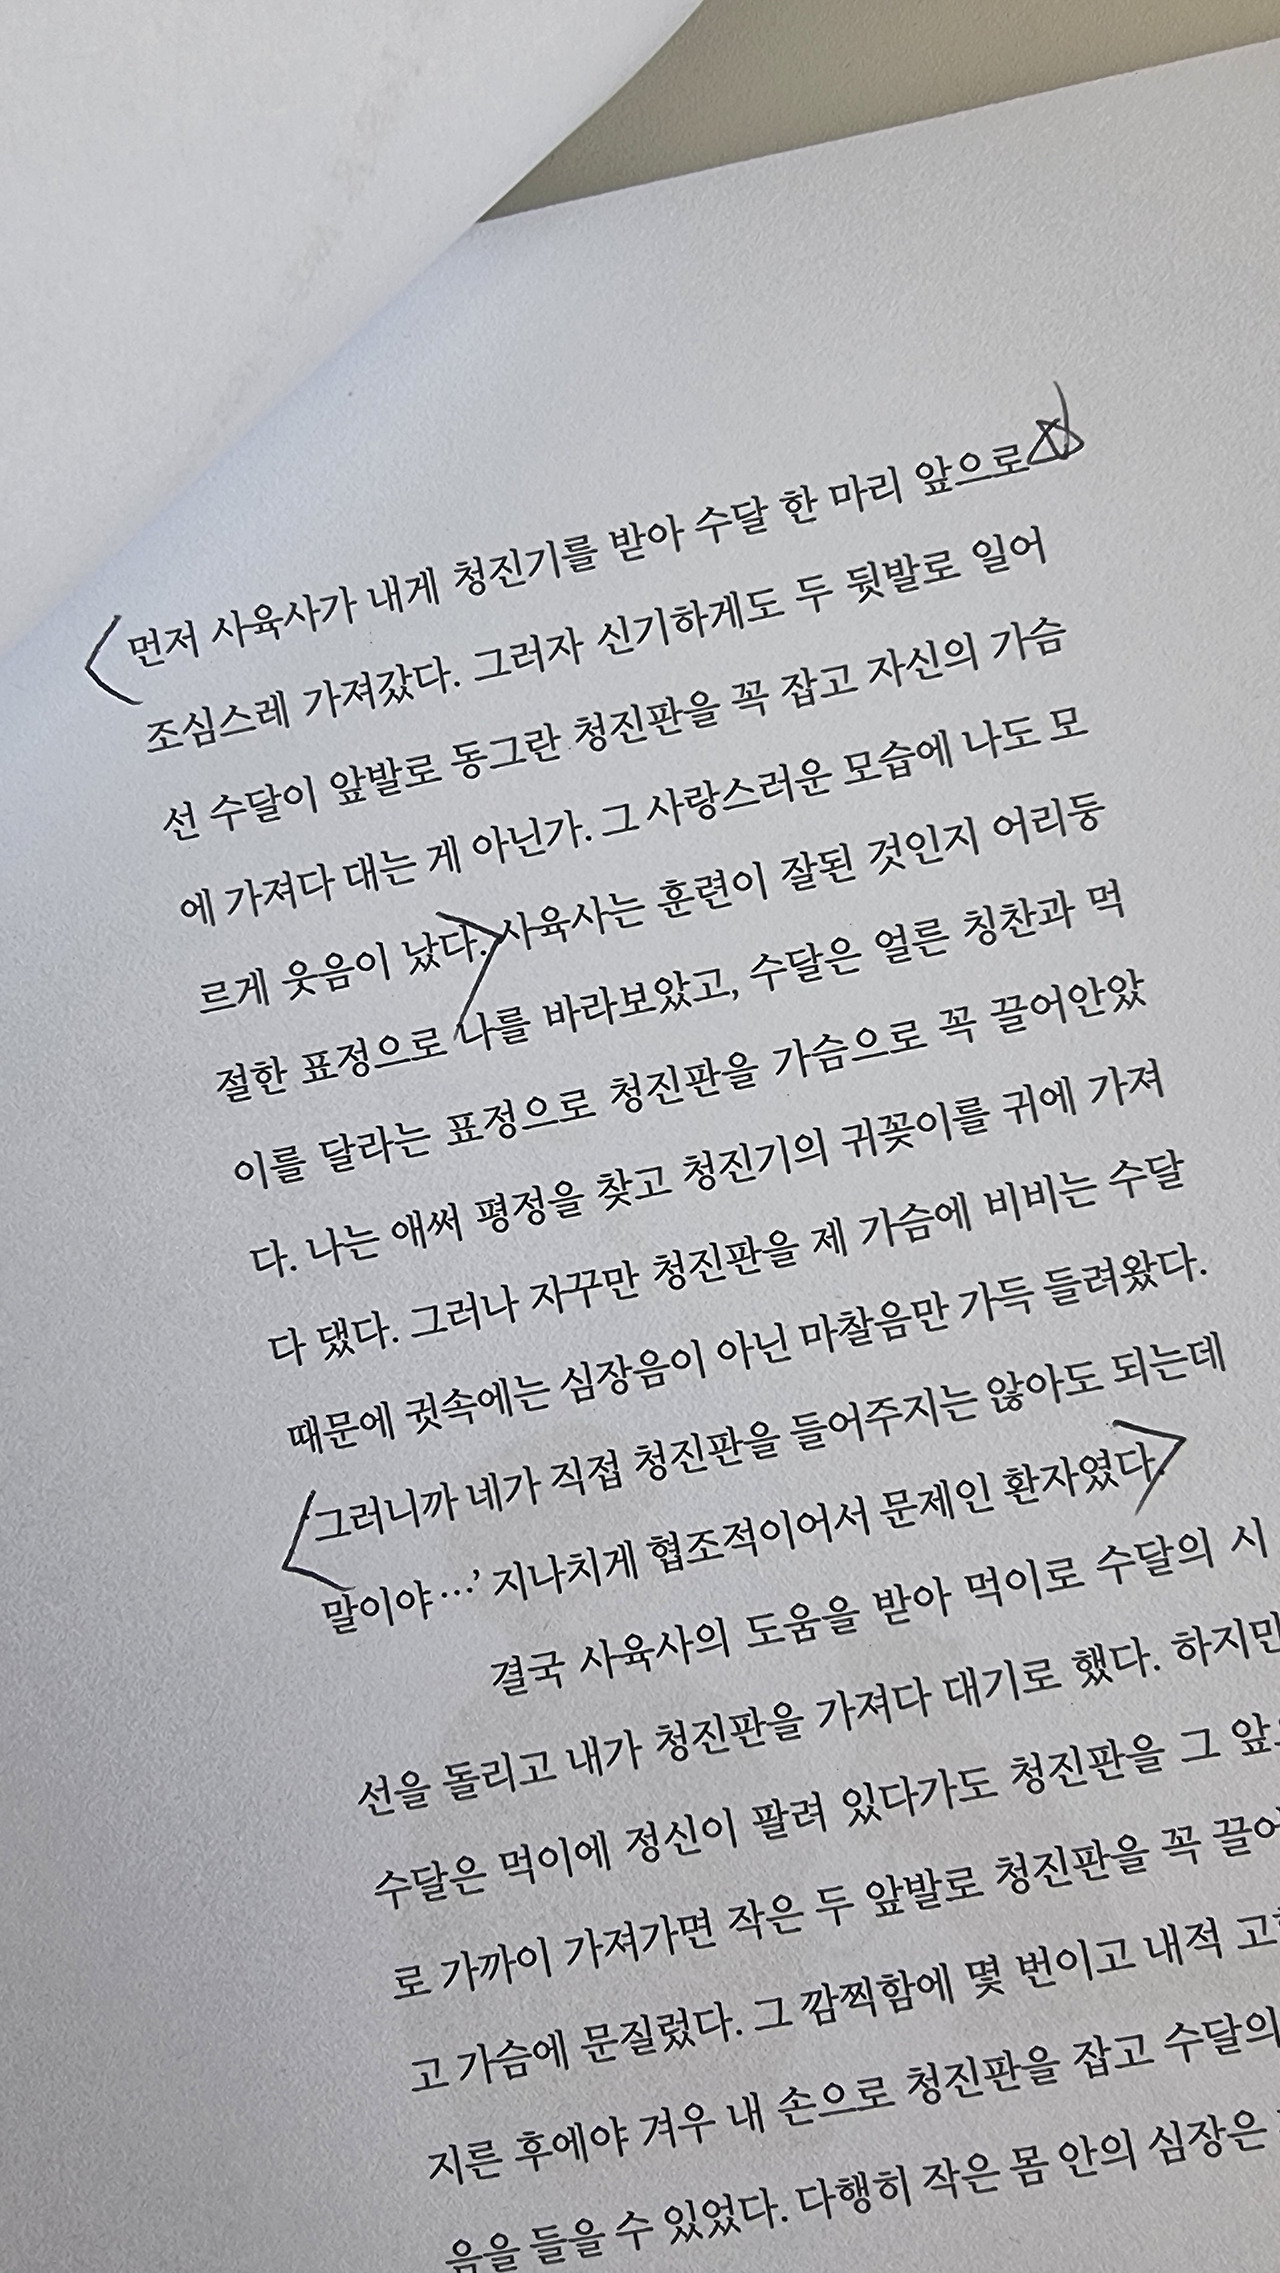 먼저 사육사가 내게 청진기를 받아 수달 한 마리 앞으로
조심스레 가져갔다. 그러자 신기하게도 두 뒷발로 일어
선 수달이 앞발로 동그란 청진판을 꼭 잡고 자신의 가슴
에 가져다 대는 게 아닌가. 그 사랑스러운 모습에 나도 모
르게 웃음이 났다. 사육사는 훈련이 잘된 것인지 어리둥
절한 표정으로 나를 바라보았고, 수달은 얼른 칭찬과 먹
이를 달라는 표정으로 청진판을 가슴으로 꼭 끌어안았
다. 나는 애써 평정을 찾고 청진기의 귀꽂이를 귀에 가져
다 댔다. 그러나 자꾸만 청진판을 제 가슴에 비비는 수달
때문에 귓속에는 심장음이 아닌 마찰음만 가득 들려왔다.
‘그러니까 네가 직접 청진판을 들어주지는 않아도 되는데
말이야…’ 지나치게 협조적이어서 문제인 환자였다.
결국 사육사의 도움을 받아 먹이로 수달의 시
선을 돌리고 내가 청진판을 가져다 대기로 했다. 하지만
수달은 먹이에 정신이 팔려 있다가도 청진판을 그 앞으
로 가까이 가져가면 작은 두 앞발로 청진판을 꼭 끌어
고 가슴에 문질렀다. 그 깜찍함에 몇 번이고 내적
지른 후에야 겨우 내 손으로 청진판을 잡고 수달의
음을 들을 수 있었다. 다행히 작은 몸 안의 심장은